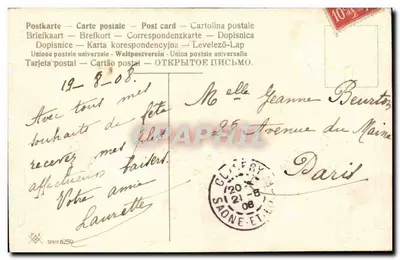 Postkarte - Carte postale - Post card - Cartolina postale
Briefkaart - Brefkort - Correspondenzkarte - Dopisnica
Dopisnice - Karta korespondencyjna - Levelező-Lap
Unione postale universale - Weltpostverein - Union postale universelle
Tarjeta postal - Cartão postal - ОТКРЫТОЕ ПИСЬМО.
19-8-08.
Avec tous mes
souhaits de fête
recevez mes plus
affectueux baisers
Votre amie
Laurette
Melle Jeanne Beurton
25 Avenue du Maine
Paris
20
21-8
08
SAONE-ET-L